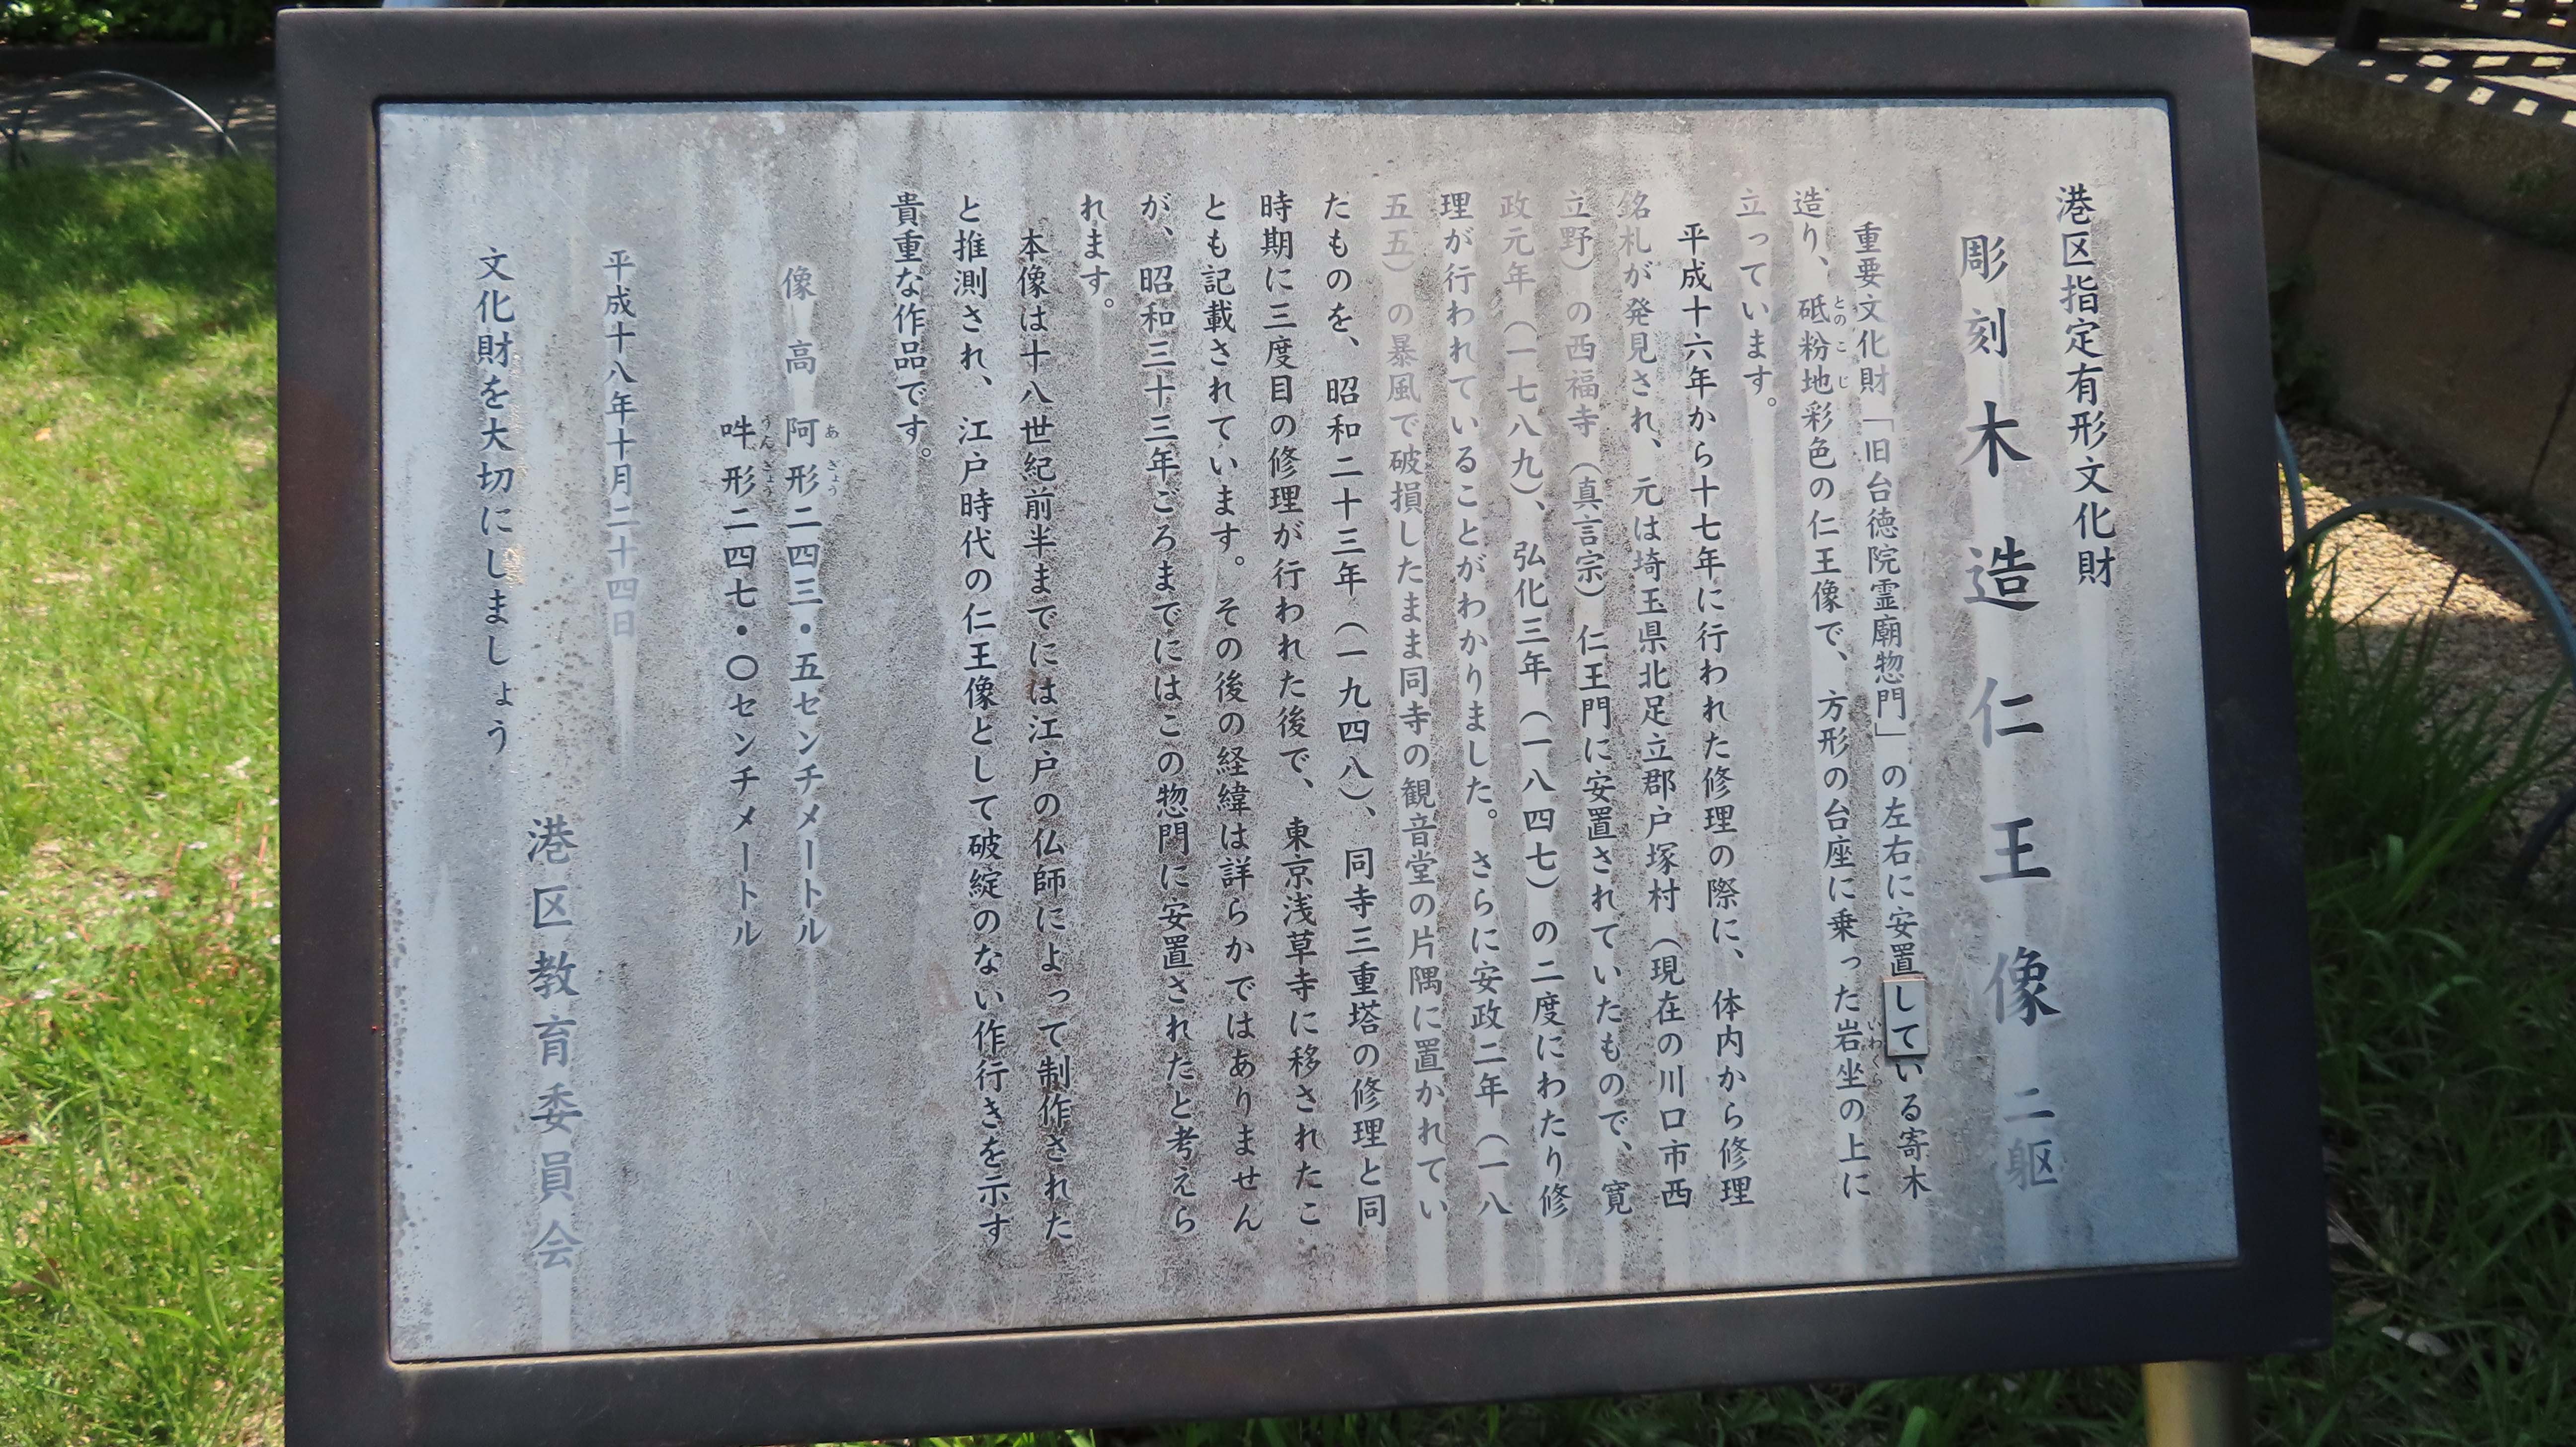 港区指定有形文化財
彫刻 木造仁王像 二躯
重要文化財「旧台徳院霊廟惣門」の左右に安置している寄木
造り、砥粉地彩色の仁王像で、方形の台座に乗った岩坐の上に
とのこじ
いわくら
立っています。
平成十六年から十七年に行われた修理の際に、体内から修理
銘札が発見され、元は埼玉県北足立郡戸塚村（現在の川口市西
立野）の西福寺（真言宗）仁王門に安置されていたもので、寛
政元年（一七八九）、弘化三年（一八四七）の二度にわたり修
理が行われていることがわかりました。さらに安政二年（一八
五五）の暴風で破損したまま同寺の観音堂の片隅に置かれてい
たものを、昭和二十三年（一九四八）、同寺三重塔の修理と同
時期に三度目の修理が行われた後で、東京浅草寺に移されたこ
とも記載されています。その後の経緯は詳らかではありません
が、昭和三十三年ごろまでにはこの惣門に安置されたと考えら
れます。
本像は十八世紀前半までには江戸の仏師によって制作された
と推測され、江戸時代の仁王像として破綻のない作行きを示す
貴重な作品です。
像高 阿形二四三・五センチメートル
あぎょう
吽形二四七・〇センチメートル
うんぎょう
平成十八年十月二十四日
港区教育委員会
文化財を大切にしましょう